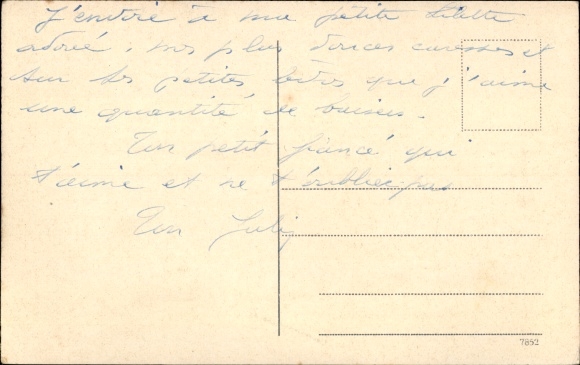 J'envoie à ma petite Lilette
adorée, mes plus douces caresses et
sur ses petites lèvres que j'aime
une quantité de baisers.
Ton petit fiancé qui
t'aime et ne t'oublie pas
Ton
7852